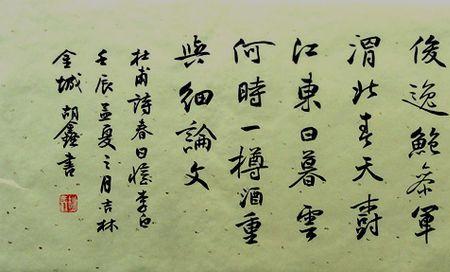 俊逸鮑參軍
渭北春天樹
江東日暮雲
何時一樽酒重
與細論文
杜甫詩春日憶李白
壬辰孟夏之月吉林
金城胡鑫書